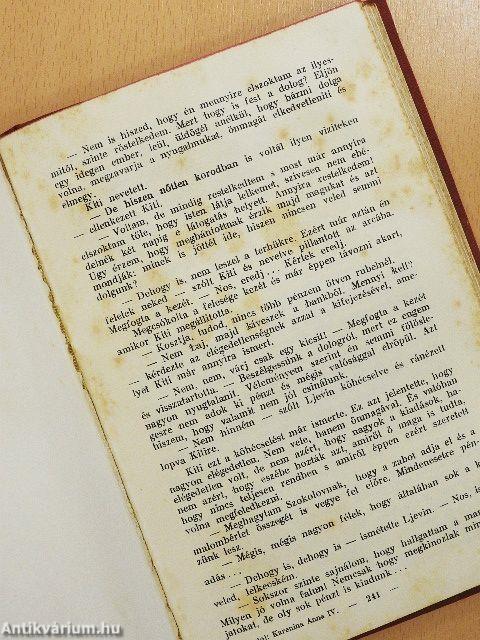 — Nem is hiszed, hogy én mennyire elszoktam az ilyes-
mitől, szinte röstelkedem. Mert hogy is fest a dolog? Eljön
egy idegen ember, leül, üldögél anélkül, hogy bármi dolga
volna, megzavarja a nyugalmukat, önmagát elkedvetleníti és
elmegy.
Kiti nevetett.
— De hiszen nőtlen korodban is voltál ilyen viziteken
— ellenkezett Kiti.
— Voltam, de mindig restelkedtem s most már annyira
elszoktam tőle, hogy isten látja lelkemet, szívesen nem ebé-
delnék két napig e látogatás helyett. Annyira restelkedem!
Úgy érzem, hogy megbántottnak érzik majd magukat és azt
mondják: minek is jöttél ide, hiszen nincsen veled semmi
dolgunk?
— Dehogy is, nem leszel a terhükre. Ezért már aztán én
felelek néked — szólt Kiti és nevetve pillantott az arcába.
Megfogta a kezét. — Nos, eredj... Kérlek eredj.
Megcsókolta a felesége kezét és már éppen távozni akart,
amikor Kiti megállította.
— Kosztja, tudod, nincs több pénzem ötven rubelnél.
— Nem baj, majd kiveszek a bankból. Mennyi kell?
— kérdezte az elégedetlenségnek azzal a kifejezésével, ame-
lyet Kiti már annyira ismert.
— Nem, nem, várj csak egy kicsit! — Megfogta a kezét
és visszatartotta. — Beszélgessünk a dologról, mert ez engem
nagyon nyugtalanít. Véleményem szerint én semmi fölösle-
gesre nem adok ki pénzt és mégis valósággal elröpül. Azt
hiszem, hogy valamit nem jól csinálunk.
— Nem hinném — szólt Ljevin köhécselve és ránézett
lopva Kitire.
Kiti ezt a köhécselést már ismerte. Ez azt jelentette, hogy
nagyon elégedetlen. Nem vele, hanem önmagával. És valóban
elégedetlen volt, de nem azért, hogy nagyok a kiadások, ha-
nem azért, hogy eszébe hozták azt, amiről ő maga is tudta,
hogy nincs teljesen rendben s amiről éppen ezért szeretett
volna megfeledkezni.
— Meghagytam Szokolovnak, hogy a zabot adja el és a
malombérlet összegét is vegye fel előre. Mindenesetre pén-
zünk lesz.
— Mégis, mégis nagyon félek, hogy általában sok a k
adás...
— Dehogy is, dehogy is — ismételte Ljevin. — Nos, is
veled, lelkecském.
— Sokszor szinte sajnálom, hogy hallgattam a ma
Milyen jó volna falun! Nemcsak hogy megkínozlak min
jatokat, de oly sok pénzt is kiadunk...
Karenina Anna IV. — 241
Antikvárium.hu